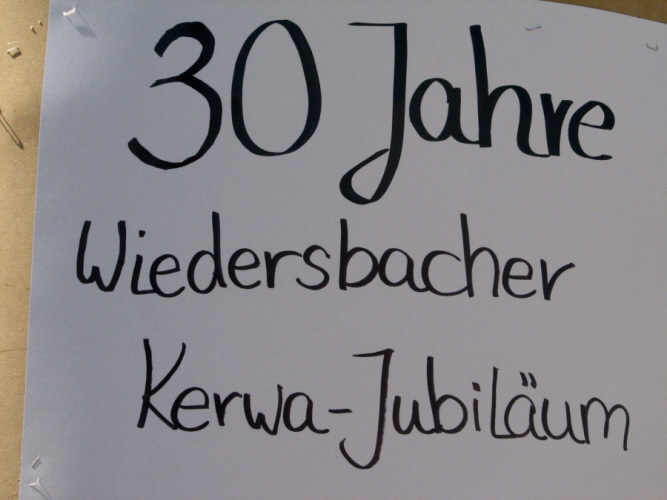 30 Jahre
Wiedersbacher
Kerwa-Jubiläum